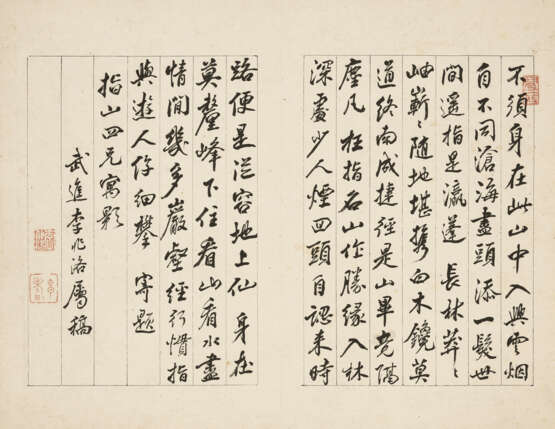 不須身在此山中入興雲烟
自不同滄海盡頭添一髮世
間遥指是瀛蓬 長林莽〻
岫嶄〻隨地堪携白木鑱莫
道終南成捷徑是山畢竟隔
塵凡 枉指名山作勝緣入林
深處少人煙回頭自認来時
路便是從容地上仙 身在
莫釐峰下住看山看水盡
情閒幾多巖壑經行慣指
與遊人仔細攀 寄題
指山四兄寓影
武進李兆洛屬稿